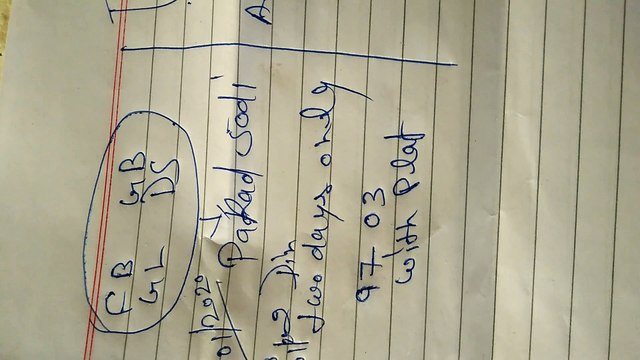 FB GB
GL DS
01/2020 Pakad Jodi
Din
two days only
97-03
with plat